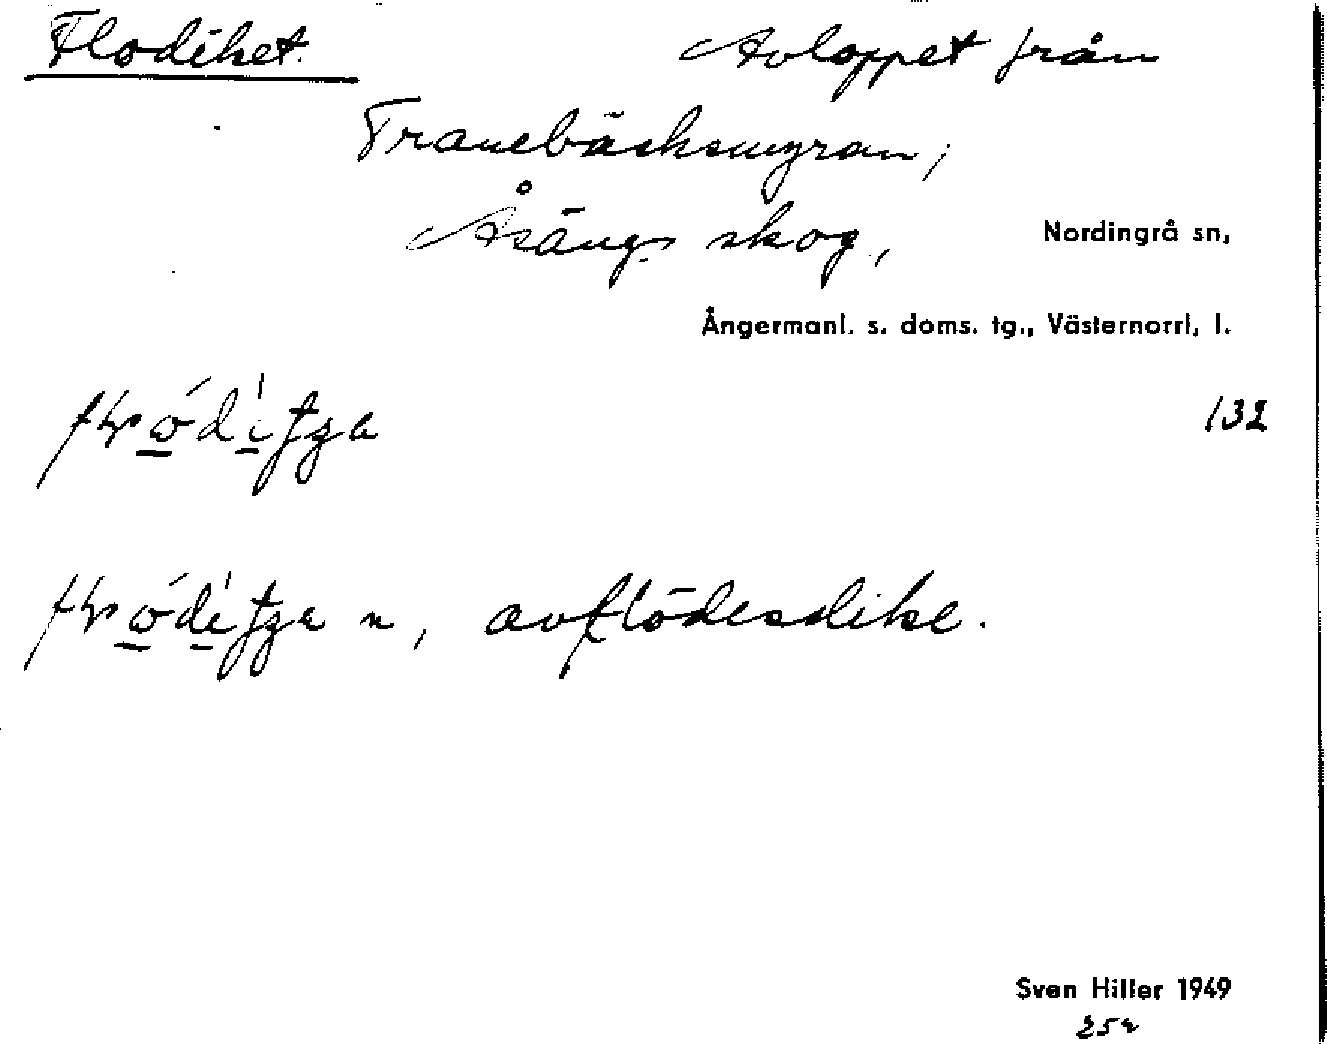 Flodiket. Avloppet från
Tranebäcksmyran,
Åsängs skog, Nordingrå sn,
Ångermanl. s. doms. tg., Västernorrl. l.
132
n, avflödesdike.
Sven Hiller 1949